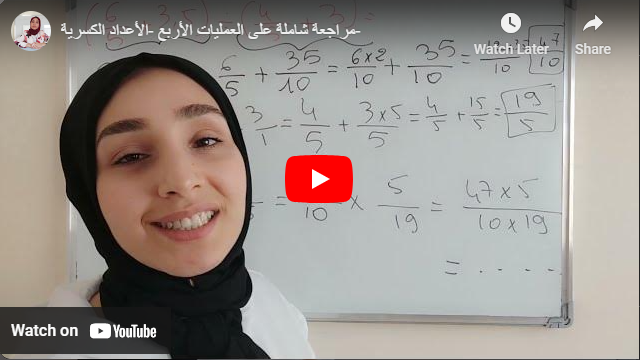 -مراجعة شاملة على العمليات الأربع -الأعداد الكسرية
Watch Later
Share
6/5 + 35/10 = 6×2/10 + 35/10 = 47/10
3/1 = 4/5 + 3×5/5 = 4/5 + 15/5 = 19/5
= 10 × 5/19 = 47×5/10×19
= . . . . .
Watch on YouTube